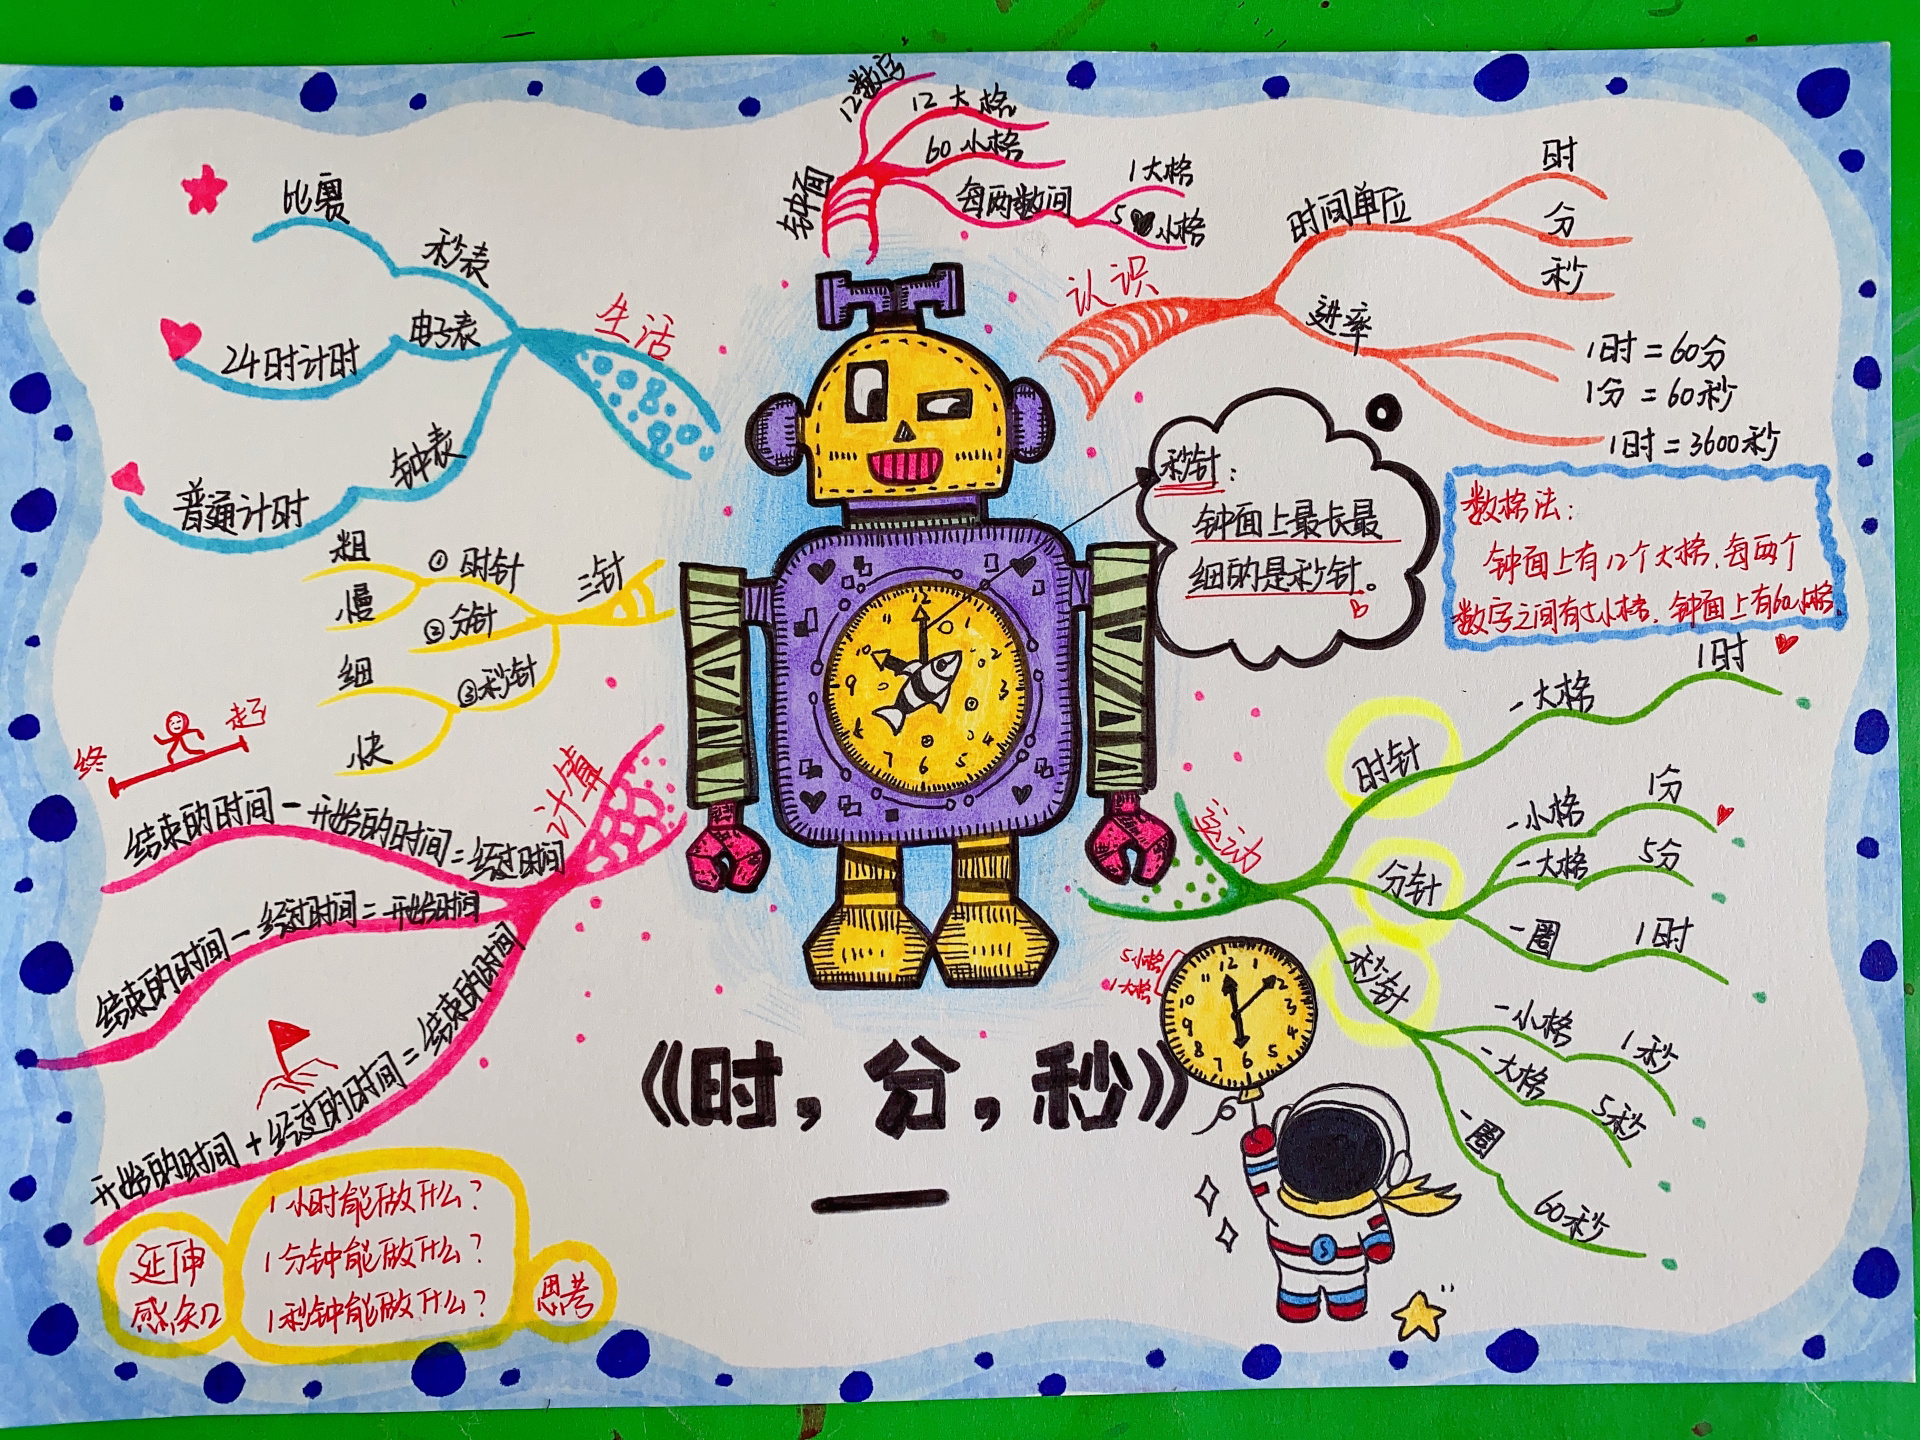 钟面
12数字
12大格
60小格
每两数间
1大格
5小格
认识
时间单位
时
分
秒
进率
1时=60分
1分=60秒
1时=3600秒
秒针:
钟面上最长最
细的是秒针。
数格法:
钟面上有12个大格,每两个
数字之间有5小格,钟面上有60小格.
生活
秒表
比赛
电子表
24时计时
钟表
普通计时
三针
①时针
粗
慢
②分针
③秒针
细
快
12
1
2
3
4
5
6
7
8
9
10
终
起
计算
结束的时间-开始的时间=经过时间
结束的时间-经过时间=开始时间
开始的时间+经过的时间=结束的时间
运动
时针
一大格
1时
分针
一小格
1分
一大格
5分
一圈
1时
秒针
一小格
1秒
一大格
5秒
一圈
60秒
5小格
1大格
12
1
2
3
4
5
6
7
8
9
10
11
《时,分,秒》
延伸
感知
1小时能做什么?
1分钟能做什么?
1秒钟能做什么?
思考
S